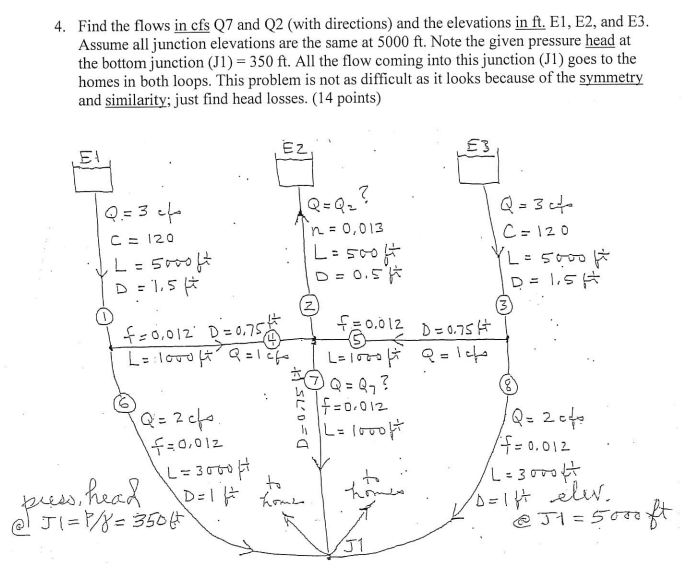 4. Find the flows in cfs Q7 and Q2 (with directions) and the elevations in ft. E1, E2, and E3.
Assume all junction elevations are the same at 5000 ft. Note the given pressure head at
the bottom junction (J1) = 350 ft. All the flow coming into this junction (J1) goes to the
homes in both loops. This problem is not as difficult as it looks because of the symmetry
and similarity; just find head losses. (14 points)
E1
E2
E3
Q = 3 cfs
C = 120
L = 5000 ft
D = 1.5 ft
Q = Q2 ?
n = 0,013
L = 500 ft
D = 0.5 ft
Q = 3 cfs
C = 120
L = 5000 ft
D = 1.5 ft
1
2
3
f = 0,012 D = 0.75 ft
4
L = 1000 ft Q = 1 cfs
f = 0.012 D = 0.75 ft
5
L = 1000 ft Q = 1 cfs
6
Q = 2 cfs
f = 0.012
L = 3000 ft
D = 1 ft
7
Q = Q7 ?
f = 0.012
L = 1000 ft
D = 0.75 ft
8
Q = 2 cfs
f = 0.012
L = 3000 ft
D = 1 ft
to
homes
to
homes
press, head
@ J1 = P/γ = 350 ft
elev.
@ J1 = 5000 ft
J1